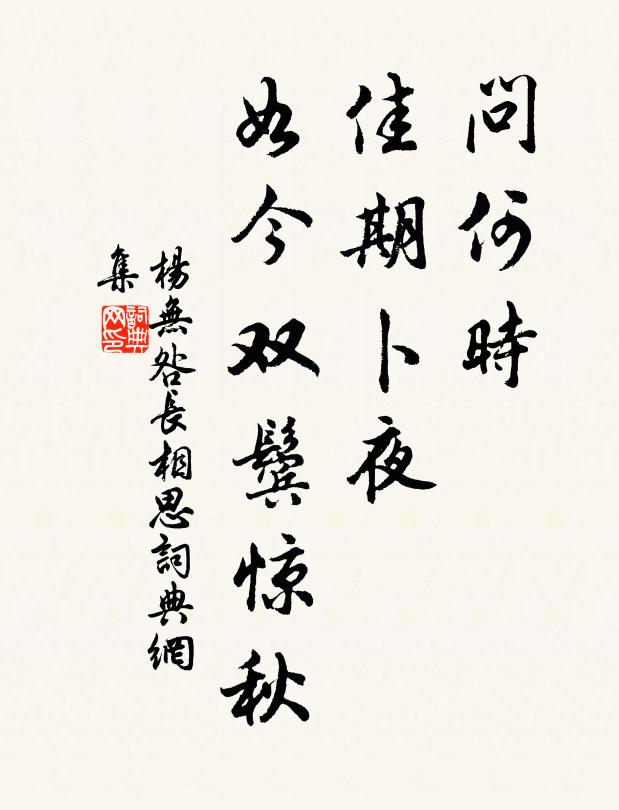 問何時
佳期卜夜
如今双鬓惊秋
楊無咎長相思詞典網
集
詞典
网印